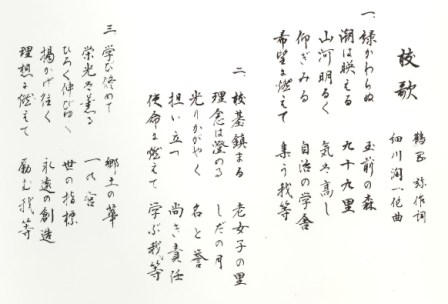 校歌
鶴岡 弥作詞
細川潤一作曲
一、緑かわらぬ 玉前の森
潮は映える 九十九里
山河明るく 気は高し
仰ぎみる 自治の学舎
希望に燃えて 集う我等
二、校基鎮まる 老女子の里
理念は澄める しだの月
光りかがやく 名と誉
担い立つ 尚き責任
使命に燃えて 学ぶ我等
三、学び修めて 郷土の華
栄光は薫る 一の宮
ひろく伸びゆく 世の指標
掲かげ往く 永遠の創造
理想に燃えて 励む我等